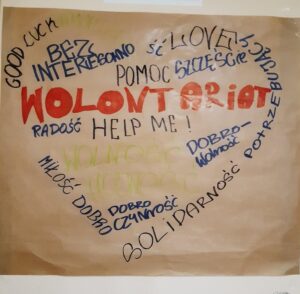 GOOD LUCK
BEZ
INTERESOWNO ŚĆ
LOVE
POMOC SZCZĘŚCIE
POTRZEBUJĄCY
WOLONTARiaT
RADOŚĆ HELP ME!
DOBRO-
WOLNOŚĆ
MIŁOŚĆ DOBRO
DOBRO
CZYNNOŚĆ
SOLIDARNOŚĆ